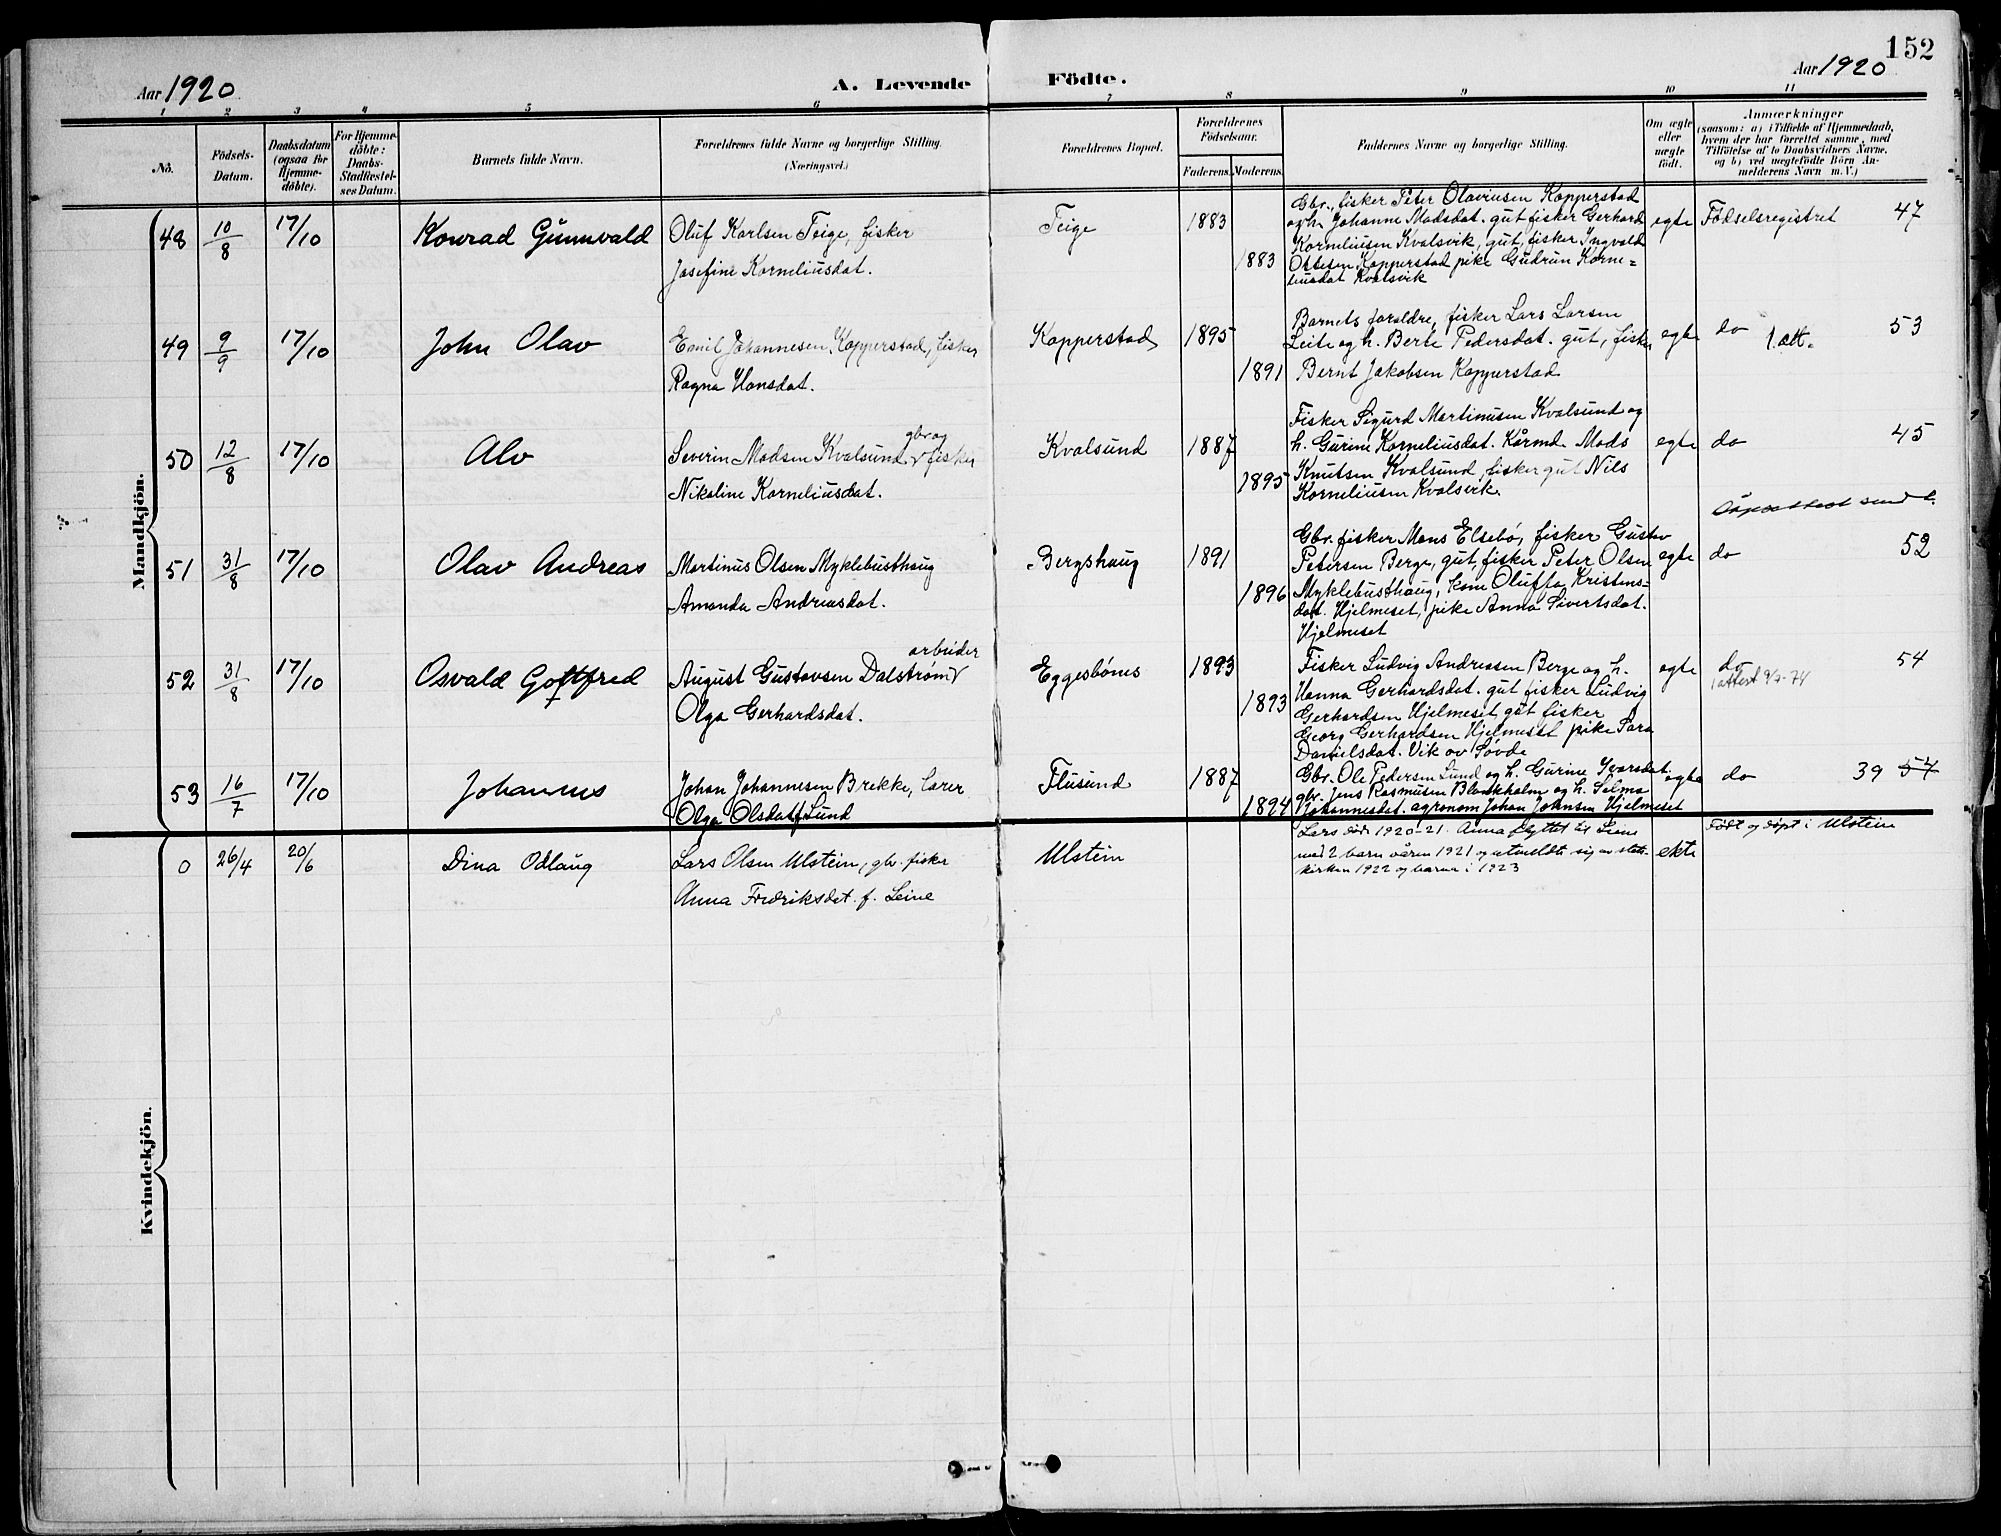 152
Aar 1920
A. Levende Födte.
Aar 1920
1 2 3 4 5 6 7 8 9 10 11
No.
Födsels-Datum.
Daabsdatum (ogsaa for Hjemme-döbte).
For Hjemme-döbte: Daabs-Stadfæstel-ses Datum.
Barnets fulde Navn.
Forældrenes fulde Navne og borgerlige Stilling.
(Næringsvei.)
Forældrenes Bopæl.
Forældrenes Födselsaar.
Faderens. Moderens.
Faddernes Navne og borgerlige Stilling.
Om ægte eller uægte født.
Anmærkninger
(saasom: a) i Tilfælde af Hjemmedaab,
hvem der har forrettet samme, med
Tilföielse af to Daabsvidners Navne,
og b) ved uægtefödte Börn An-
melderens Navn m. V.)
Mandkjön.
48 10/8 17/10 Konrad Gunnvald
Oluf Karlsen Teige, fisker
Josefine Korneliusdat.
Teige 1883
1883
Gbr., fisker Peter Olaviusen Kopperstad
og h. Johanne Madsdat. gut fisker Gerhard
Korneliusen Kvalsvik, gut, fisker Ingvald
Ottesen Kopperstad pike Gudrun Korne=
liusdat Kvalsvik
egte Födselsregistret 47
49 9/9 17/10 John Olav
Emil Johannesen Kopperstad, fisker
Ragna Hansdat.
Kopperstad 1895
1891
Barnets foraldre, fisker Lars Larsen
Leite og h. Berte Pedersdat. gut, fisker
Bernt Jakobsen Kopperstad
egte do 1 att. 53
50 12/8 17/10 Alv
gbr og
Severin Madsen Kvalsund fisker
Nikoline Korneliusdat.
Kvalsund 1887
1895
Fisker Sigurd Martinusen Kvalsund og
h. Gurine Korneliusdat. Kårmd. Mads
Knutsen Kvalsund, fisker gut Nils
Korneliusen Kvalsvik.
egte do 45
51 31/8 17/10 Olav Andreas
Martinus Olsen Myklebusthaug
Amanda Andreasdat.
Bergshaug 1891
1896
Gbr. fisker Mons Elsebö, fisker Gustav
Petersen Berge, gut, fisker Peter Olsen
Myklebusthaug, kone Oluffa Kristens=
dat. Hjelmeset, pike Anna Sivertsdat.
Hjelmeset
egte do 52
52 31/8 17/10 Osvald Gottfred
arbeider
August Gustavsen Dalström
Olga Gerhardsdat.
Eggesbönes 1893
1893
Fisker Ludvig Andreasen Berge og h.
Hanna Gerhardsdat. gut fisker Ludvig
Gerhardsen Hjelmeset gut fisker
Georg Gerhardsen Hjelmeset pike Sara
Danielsdat. Vik av Søvde
egte do 54
1 attest 9/7-74
53 16/7 17/10 Johannes
Johan Johannesen Brekke, lærer
Olga Olsdat f. Lund
Flusund 1887
1894
Gbr. Ole Pedersen Lund og h. Gurine Ivarsdat.
gbr. Jens Rasmusen Blankholm og h. Selma
Johannesdat. agronom Johan Johnsen Hjelmeset
egte do 39 57
Kvindekjön.
0 26/4 20/6 Dina Odlaug
Lars Olsen Ulstein, gbr. fisker
Anna Fredriksdat. f. Leine
Ulstein
Lars døde 1920-21. Anna flyttet til Leine
med 2 barn våren 1921 og utmeldte sig av stats-
kirken 1922 og barna i 1923
ekte Født og døpt i Ulstein